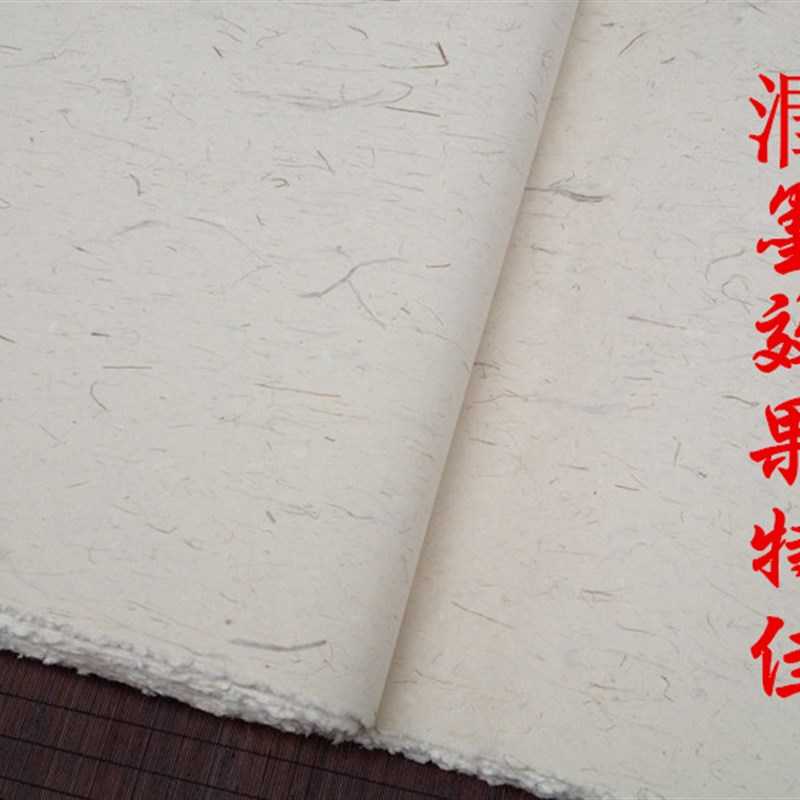 墨效果特佳